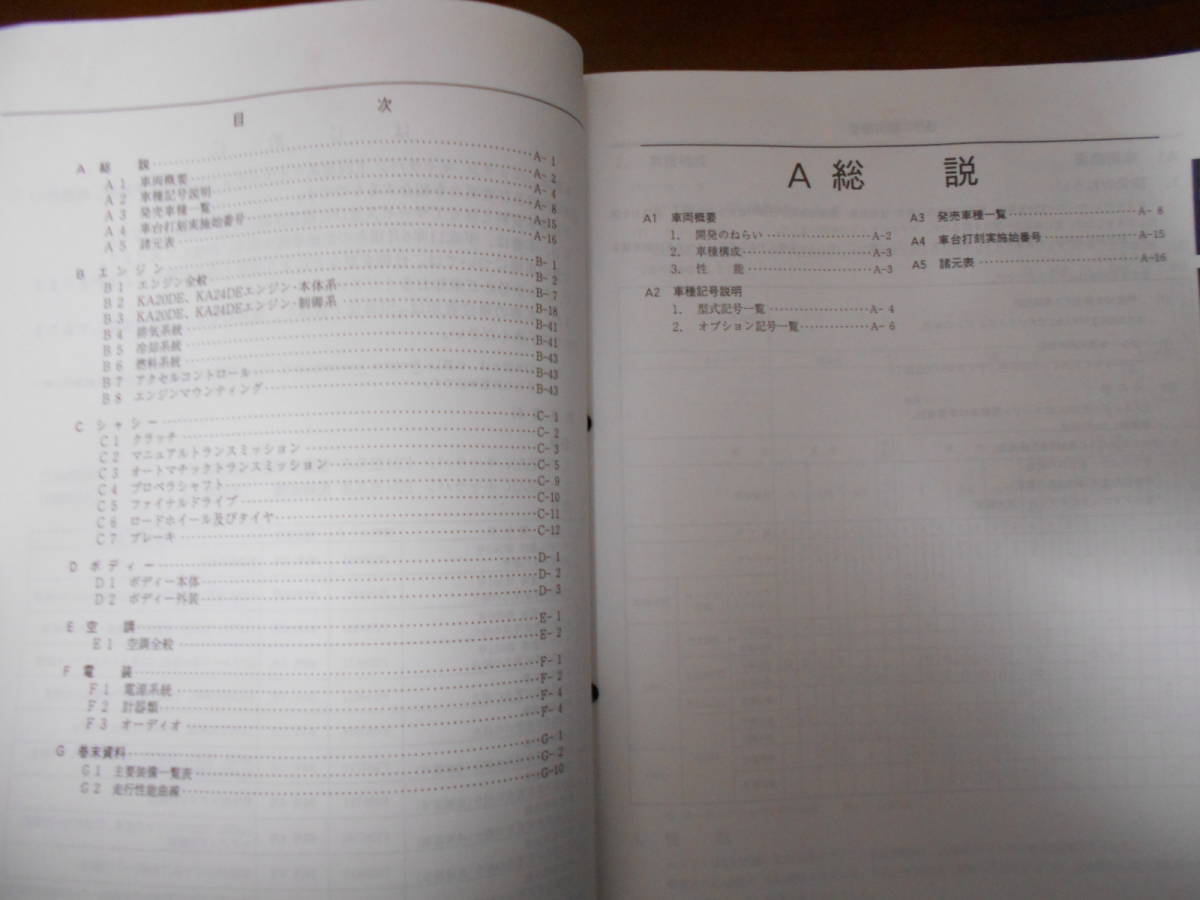 目次
A 総 説 A- 1
A1 車両概要 A- 2
A2 車種記号説明 A- 4
A3 発売車種一覧 A- 8
A4 車台打刻実施始番号 A-15
A5 諸元表 A-16
B エンジン B- 1
B1 エンジン全般 B- 2
B2 KA20DE、KA24DEエンジン・本体系 B- 7
B3 KA20DE、KA24DEエンジン・制御系 B-18
B4 排気系統 B-41
B5 冷却系統 B-41
B6 燃料系統 B-43
B7 アクセルコントロール B-43
B8 エンジンマウンティング B-43
C シャシー C- 1
C1 クラッチ C- 2
C2 マニュアルトランスミッション C- 3
C3 オートマチックトランスミッション C- 5
C4 プロペラシャフト C- 9
C5 ファイナルドライブ C-10
C6 ロードホイール及びタイヤ C-11
C7 ブレーキ C-12
D ボディー D- 1
D1 ボディー本体 D- 2
D2 ボディー外装 D- 3
E 空 調 E- 1
E1 空調全般 E- 2
F 電 装 F- 1
F1 電源系統 F- 2
F2 計器類 F- 4
F3 オーディオ F- 4
G 巻末資料 G- 1
G1 主要装備一覧表 G- 2
G2 走行性能曲線 G-10
A 総 説
A1 車両概要
1. 開発のねらい A-2
2. 車種構成 A-3
3. 性 能 A-3
A2 車種記号説明
1. 型式記号一覧 A- 4
2. オプション記号一覧 A- 6
A3 発売車種一覧 A- 8
A4 車台打刻実施始番号 A-15
A5 諸元表 A-16